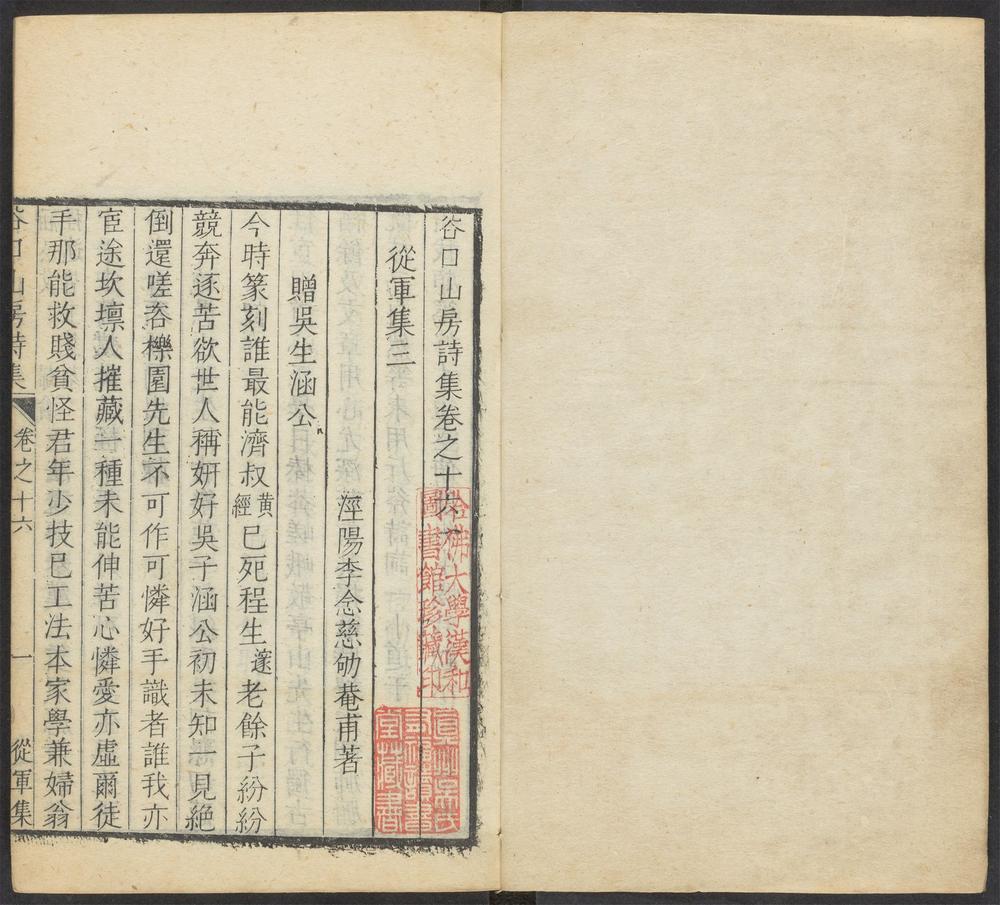 谷口山房詩集卷之十六
從軍集三
涇陽李念慈劬菴甫著
贈吳生涵公
今時篆刻誰最能濟叔黃經已死程生邃老餘子紛紛
競奔逐苦欲世人稱妍好吳子涵公初未知一見絕
倒還嗟吝櫟園先生不可作可憐好手識者誰我亦
宦途坎壈人摧藏一種未能伸苦心憐愛亦虛爾徒
手那能救賤貧怪君年少技已工法本家學兼婦翁
谷口山房詩集 卷之十六 一 從軍集
哈佛大學漢和
圖書館珍藏印